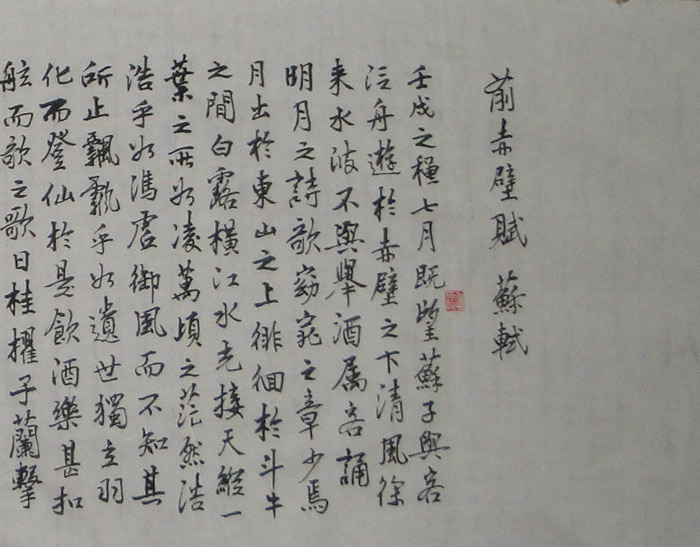 前赤壁賦 蘇軾
壬戌之秋七月既望蘇子與客
泛舟遊於赤壁之下清風徐
來水波不興舉酒属客誦
明月之詩歌窈窕之章少焉
月出於東山之上徘徊於斗牛
之間白露橫江水光接天縱一
葦之所如凌萬頃之茫然浩
浩乎如馮虛御風而不知其
所止飄飄乎如遺世獨立羽
化而登仙於是飲酒樂甚扣
舷而歌之歌曰桂櫂子蘭擊